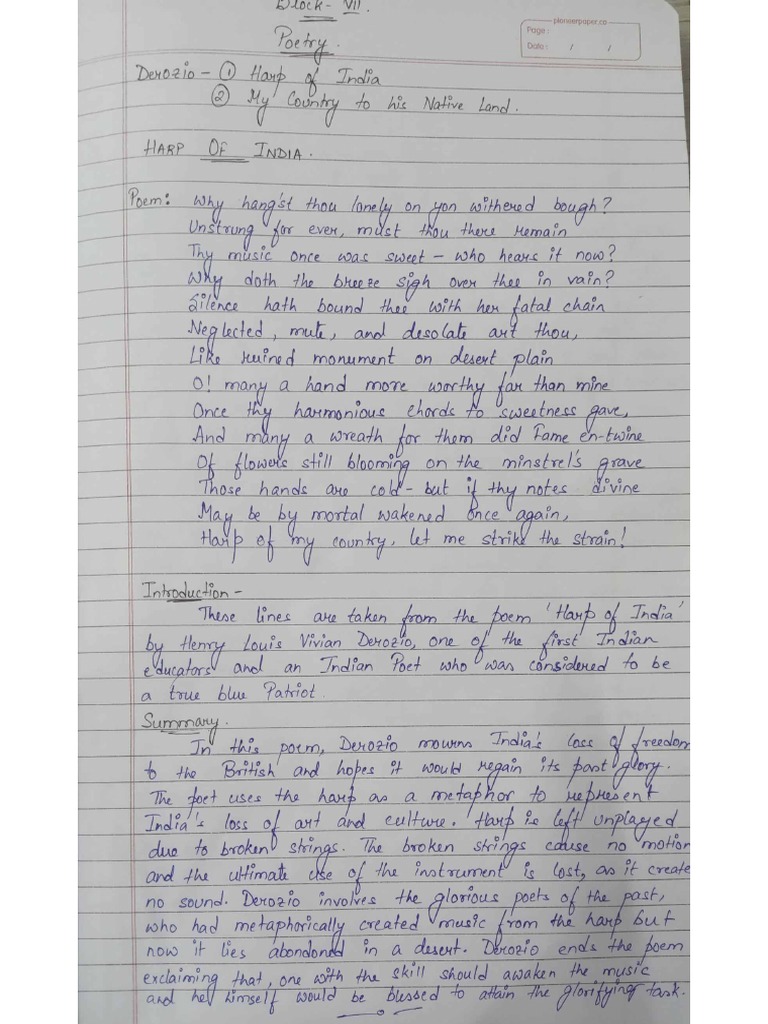 Block - VII.
pioneerpaper.co
Page :
Date : / /
Poetry.
Derozio - ① Harp of India
② My Country to his Native Land.
HARP OF INDIA.
Poem: Why hang'st thou lonely on yon withered bough?
Unstrung for ever, must thou there remain
Thy music once was sweet - who hears it now?
Why doth the breeze sigh over thee in vain?
Silence hath bound thee with her fatal chain
Neglected, mute, and desolate art thou,
Like ruined monument on desert plain
O! many a hand more worthy far than mine
Once thy harmonious chords to sweetness gave,
And many a wreath for them did Fame en-twine
Of flowers still blooming on the minstrel's grave
Those hands are cold - but if thy notes divine
May be by mortal wakened once again,
Harp of my country, let me strike the strain!
Introduction -
These lines are taken from the poem 'Harp of India'
by Henry Louis Vivian Derozio, one of the first Indian
educators and an Indian Poet who was considered to be
a true blue Patriot.
Summary.
In this poem, Derozio mourns India's loss of freedom
to the British and hopes it would regain its past glory.
The poet uses the harp as a metaphor to represent
India's loss of art and culture. Harp is left unplayed
due to broken strings. The broken strings cause no motion
and the ultimate use of the instrument is lost, as it create
no sound. Derozio involves the glorious poets of the past,
who had metaphorically created music from the harp but
now it lies abondoned in a desert. Derozio ends the poem
exclaiming that, one with the skill should awaken the music
and he himself would be blessed to attain the glorifying task.